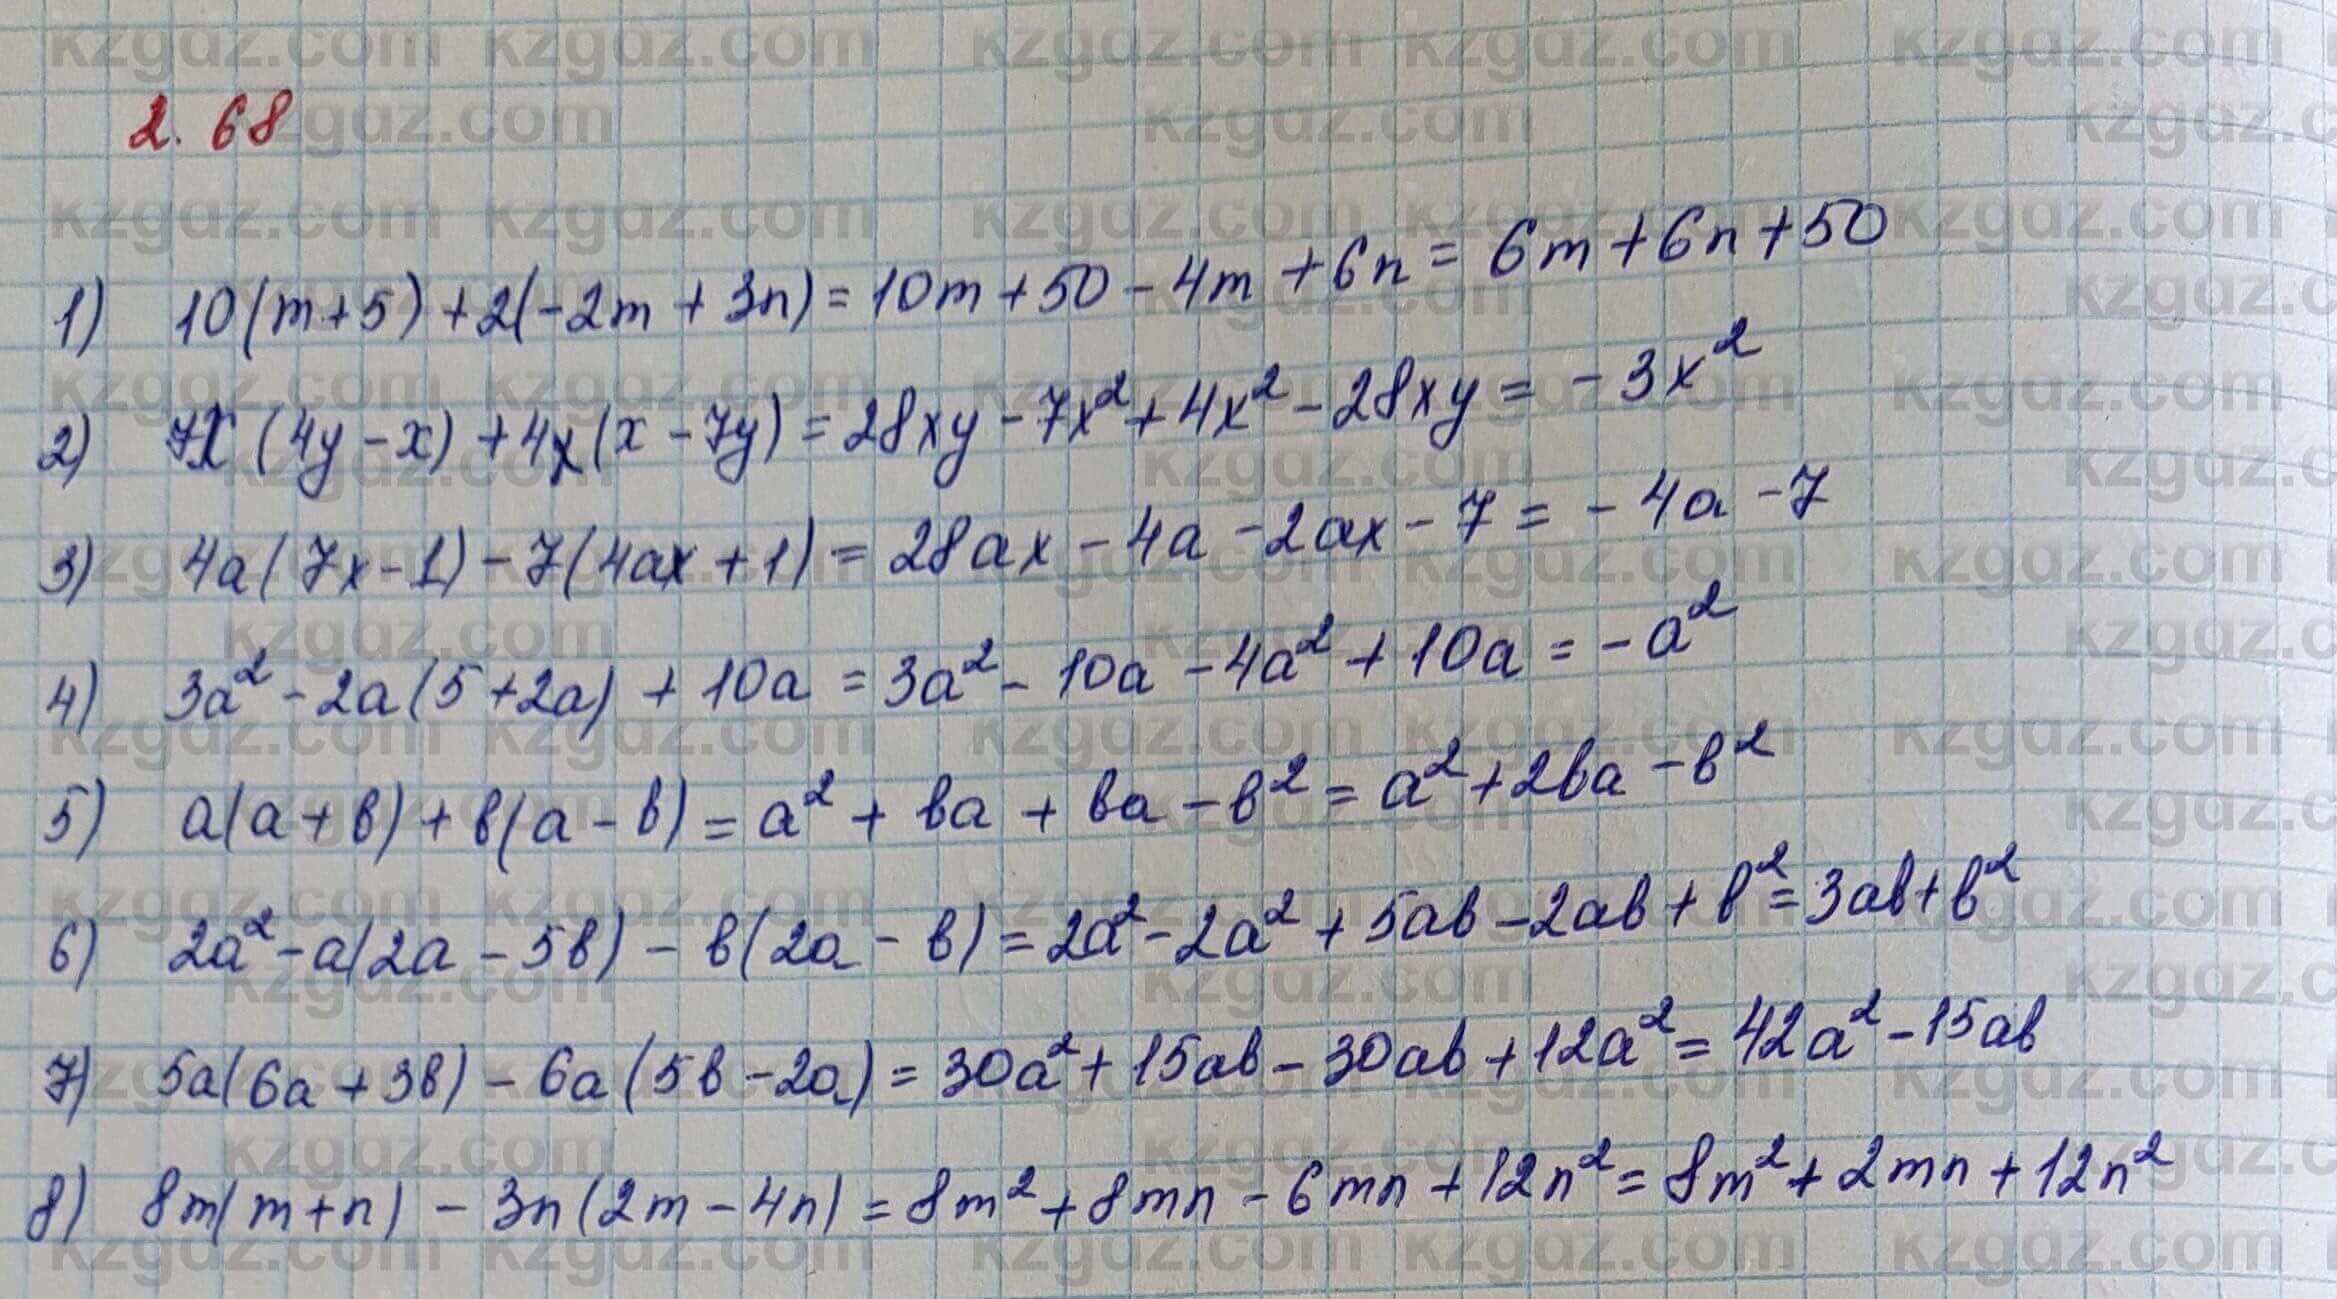 2. 68
1) 10(m+5)+2(-2m+3n)=10m+50-4m+6n=6m+6n+50
2) 7x(4y-x)+4x(x-7y)=28xy-7x²+4x²-28xy=-3x²
3) 4a(7x-1)-7(4ax+1)=28ax-4a-2ax-7=-4a-7
4) 3a²-2a(5+2a)+10a=3a²-10a-4a²+10a=-a²
5) a(a+b)+b(a-b)=a²+ba+ba-b²=a²+2ba-b²
6) 2a²-a(2a-5b)-b(2a-b)=2a²-2a²+5ab-2ab+b²=3ab+b²
7) 5a(6a+3b)-6a(5b-2a)=30a²+15ab-30ab+12a²=42a²-15ab
8) 8m(m+n)-3n(2m-4n)=8m²+8mn-6mn+12n²=8m²+2mn+12n²
kzgdz.com